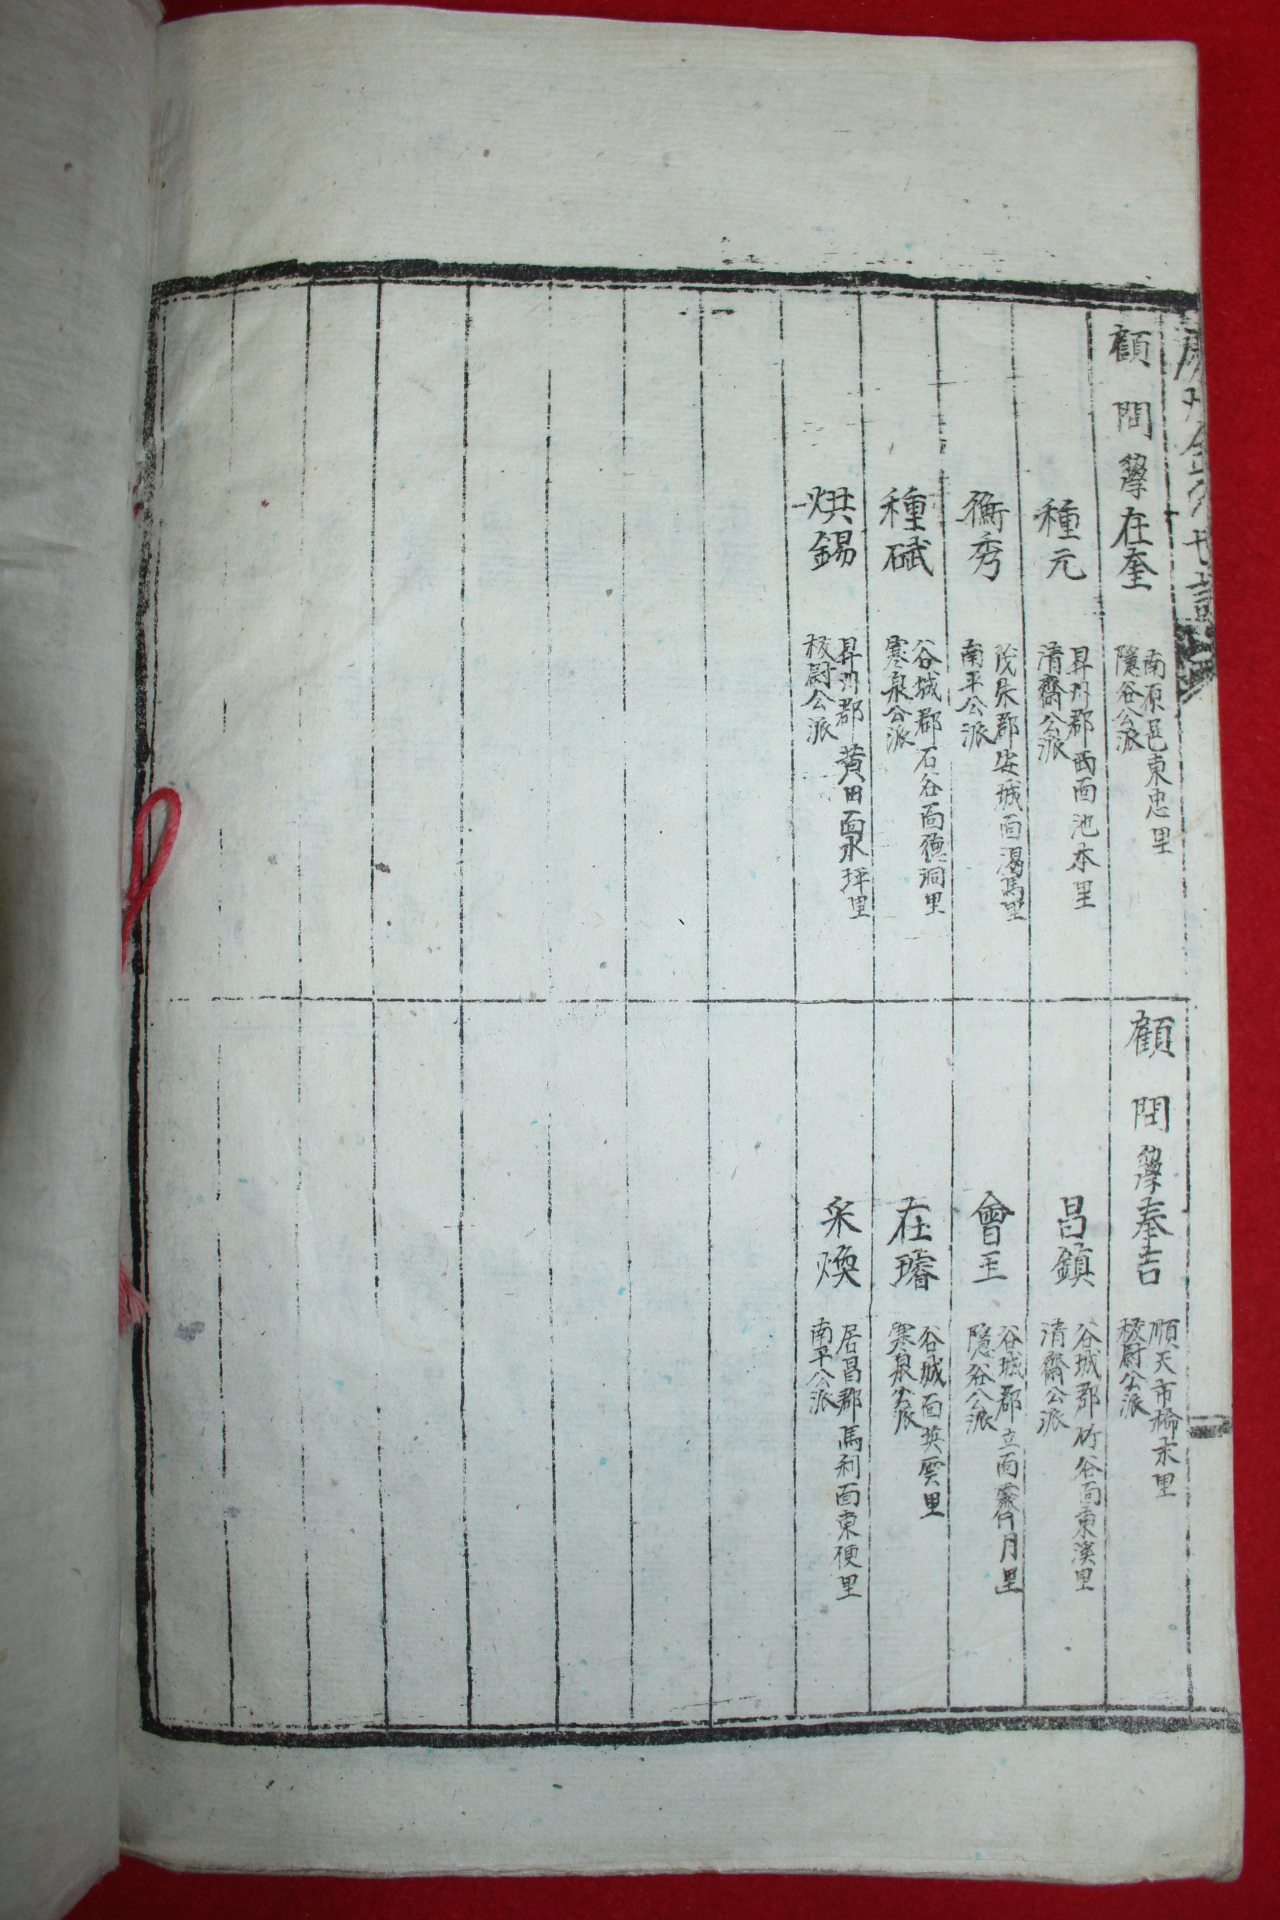 慶州金氏世譜
顧問 學 在奎 南原邑東忠里
隱谷公派
種元 昇州郡西面池本里
清齋公派
衡秀 茂朱郡安城面渴馬里
南平公派
種碔 谷城郡石谷面德洞里
寒泉公派
烘錫 昇州郡黃田面泉坪里
校尉公派
顧問 學 奉吉 順天市梧木里
校尉公派
昌鎮 谷城郡竹谷面東溪里
清齋公派
會王 谷城郡立面霽月里
隱谷公派
在璿 谷城面英雲里
寒泉公派
采煥 居昌郡馬利面東便里
南平公派